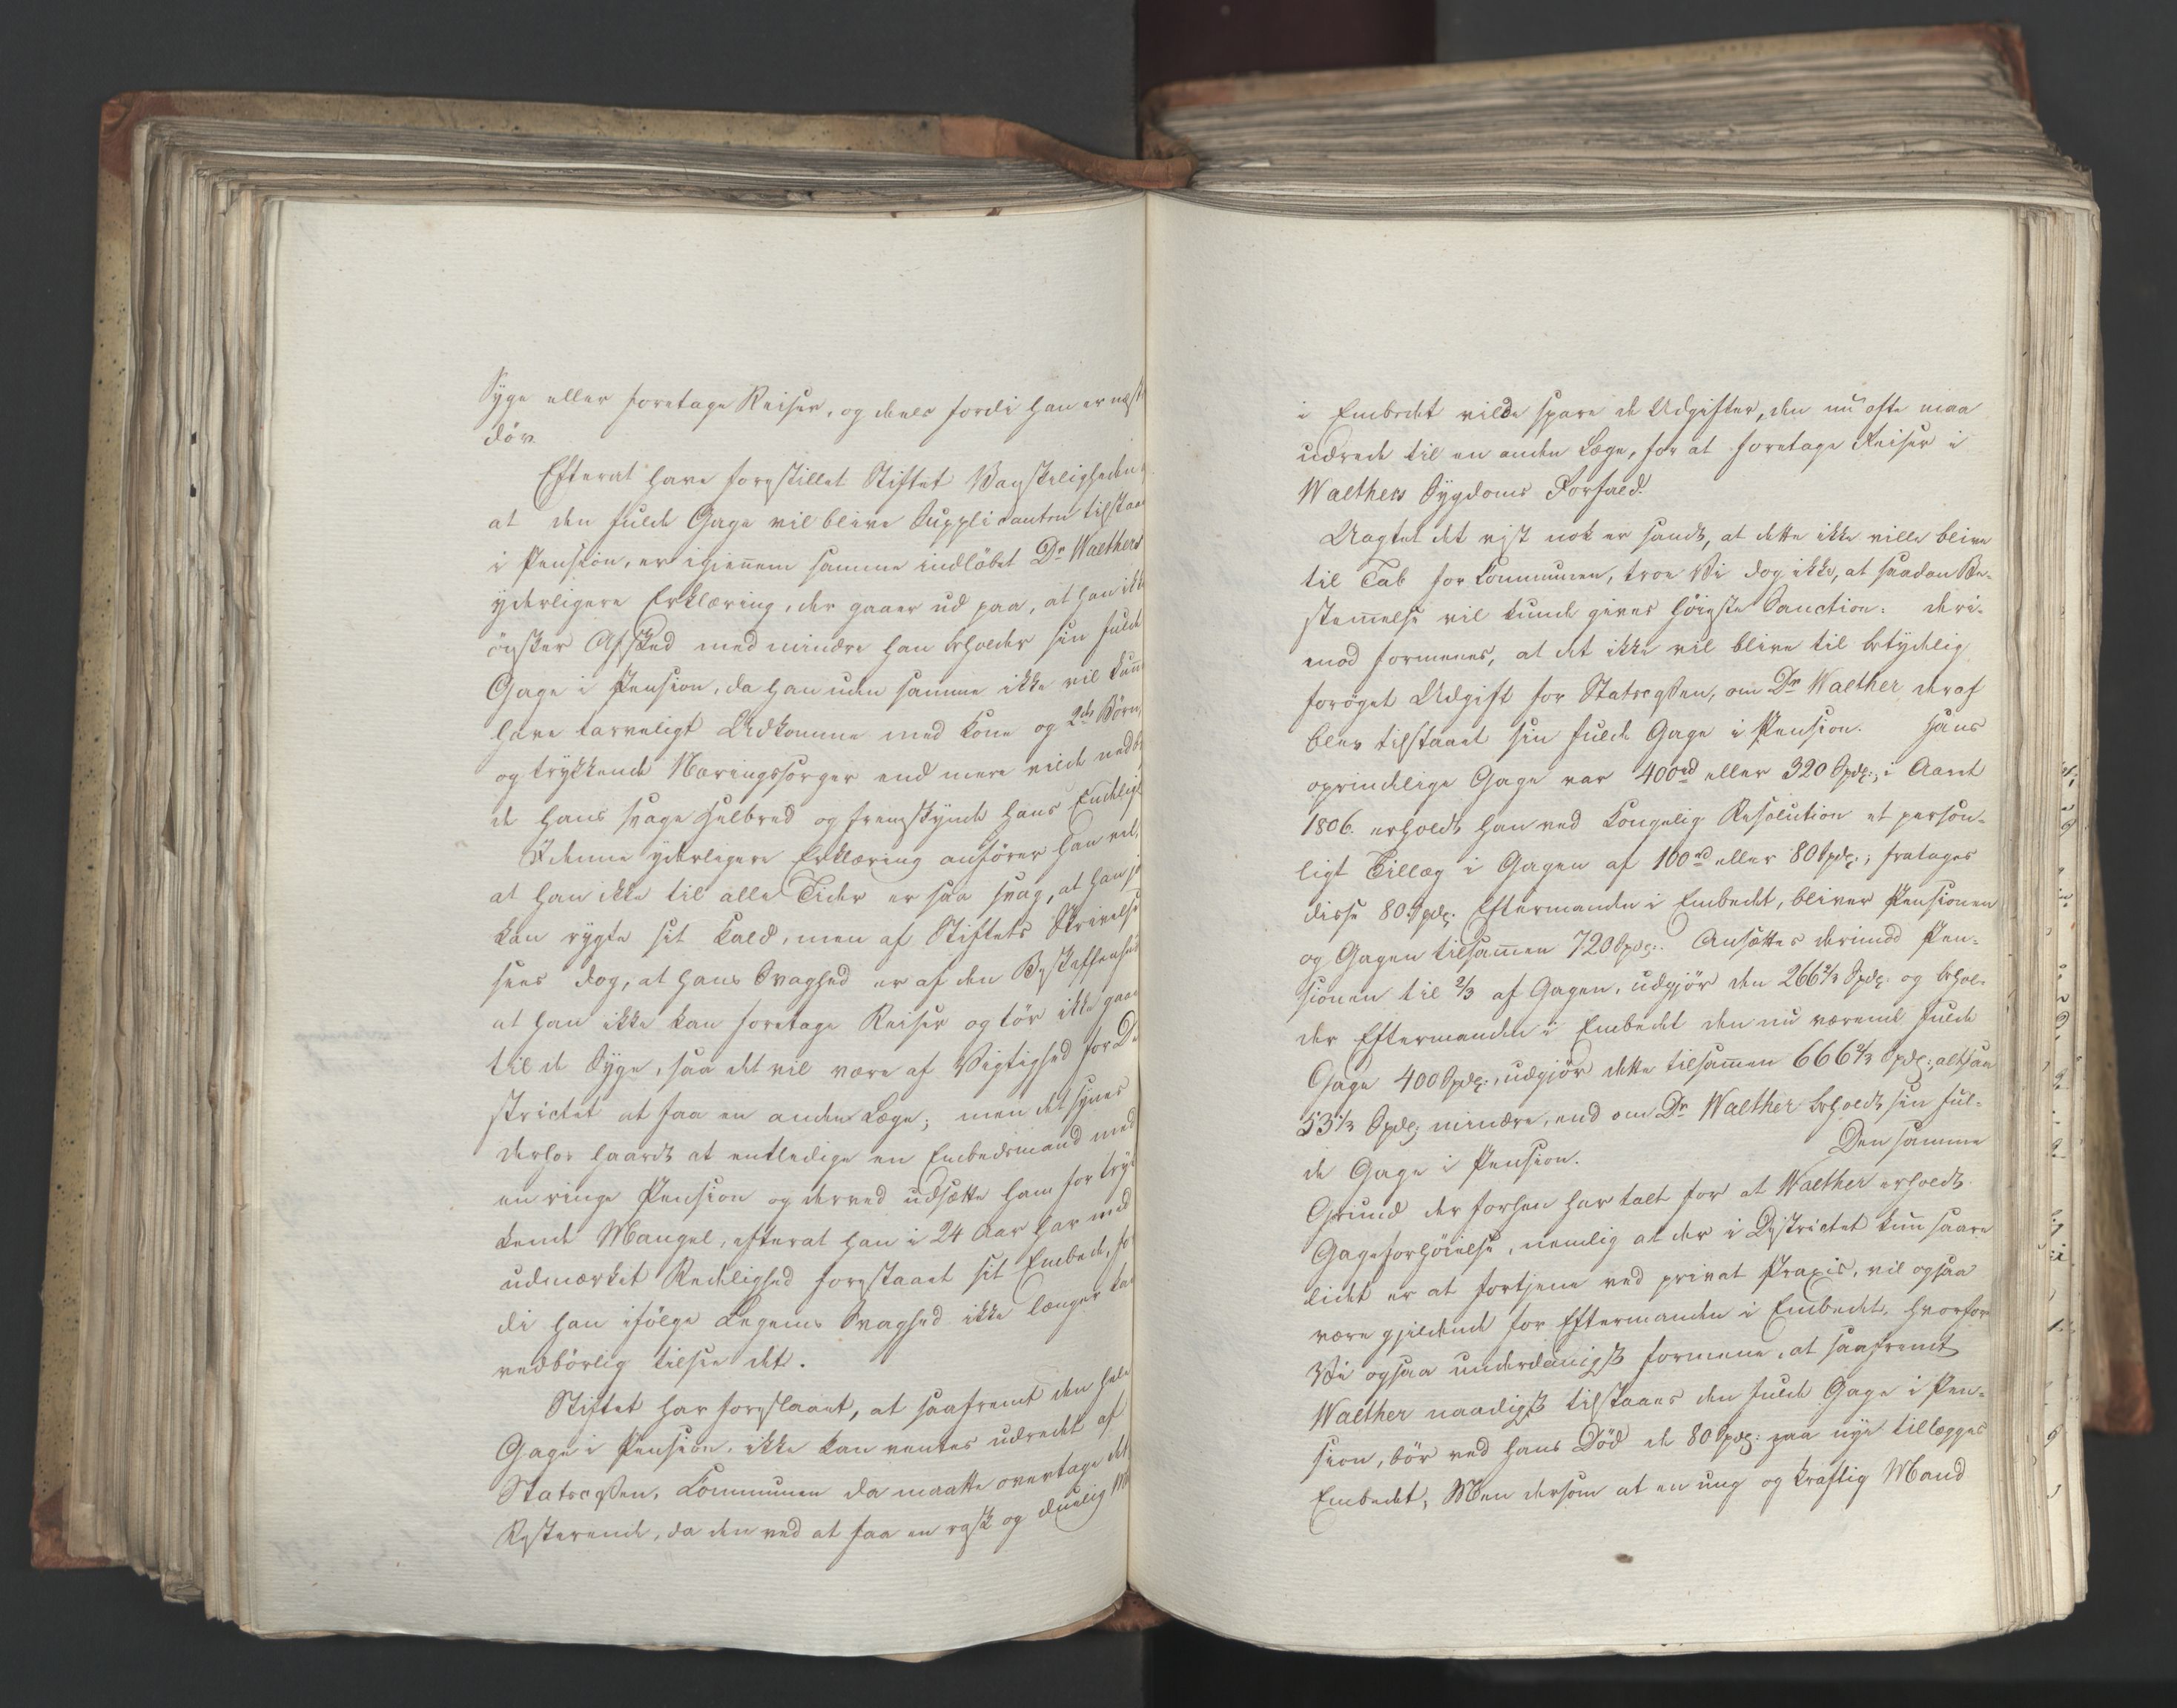 Syge eller foretage Reiser, og deels fordi han er næst
döv.
Efterat have forestillet Stiftet Vanskeligheden
at den fulde Gage vil blive Supplicanten tilstaa
i Pension, er igiennem samme indlöbet Dr Walthers
yderligere Erklæring, der gaaer ud paa, at han ikk
önsker Afsked med mindre han beholder sin fulde
Gage i Pension, da han uden samme ikke vil kunn
have tarveligt Udkomme med Kone og 2de Börn,
og trykkende Næringssorger end mere vilde nedb
de hans svage Helbred og fremskynde hans Endeligt
I denne yderligere Erklæring anförer han vel,
at han ikke til alle Tider er saa svag, at han jo
kan rygte sit Kald, men af Stiftets Skrivelse
sees dog, at hans Svaghed er af den Beskaffenhed
at han ikke kan foretage Reiser og tör ikke gaae
til de Syge, saa det vil være af Vigtighed for Di
strictet at faa en anden Læge; men det synes
derhos haardt at entledige en Embedsmand med
en ringe Pension og derved udsætte ham for tryk
kende Mangel, efterat han i 24 Aar har med
udmærket Redelighed forestaaet sit Embede, for
di han ifölge Legems Svaghed ikke længer kan
vedbörlig tilsee det.
Stiftet har foreslaaet, at saafremt den hele
Gage i Pension, ikke kan ventes udredet af
Statscassen, Communen da maatte overtage det
Resterende, da den ved at faa en rask og duelig M
i Embedet vilde spare de Udgifter, den nu ofte maa
udrede til en anden Læge, for at foretage Reiser i
Walthers Sygdoms Forfald.
Uagtet det vist nok er sandt, at dette ikke ville blive
til Tab for Communen, troe Vi dog ikke, at saadan Be-
stemmelse vil kunde gives höieste Sanction: deri-
mod formenes, at det ikke vil blive til betydelig
foröget Udgift for Statscassen, om Dr Walther deraf
blev tilstaaet sin fulde Gage i Pension. Hans
oprindelige Gage var 400rd eller 320 Spdlr:, i Aaret
1806. erholdt han ved Kongelig Resolution et person-
ligt Tillæg i Gagen af 100rd eller 80 Spdlr:; fratages
disse 80 Spdlr. Eftermanden i Embedet, bliver Pensionen
og Gagen tilsammen 720 Spdlr:. Ansættes derimod Pen-
sionen til 2/3 af Gagen, udgjör den 266 2/3 Spdlr: og behol-
der Eftermanden i Embedet den nu værende fulde
Gage 400 Spdlr:, udgjör dette tilsammen 666 2/3 Spdlr:, altsaa
53 1/3 Spdlr: mindre, end om Dr Walther beholdt sin ful-
de Gage i Pension. Den samme
Grund der forhen har talt for at Walther erholdt
Gageforhöielse, nemlig at der i Districtet kun saare
lidet er at fortjene ved privat Praxis, vil ogsaa
være gjeldende for Eftermanden i Embedet, hvorfor
Vi ogsaa underdanigst formene, at saafremt
Walther naadigst tilstaaes den fulde Gage i Pen-
sion, bör ved hans Död de 80 Spdlr: paa nye tillægges
Embedet, Men dersom at en ung og kraftig Mand